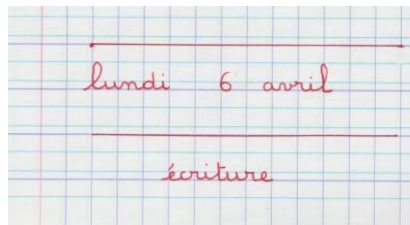 lundi 6 avril
écriture